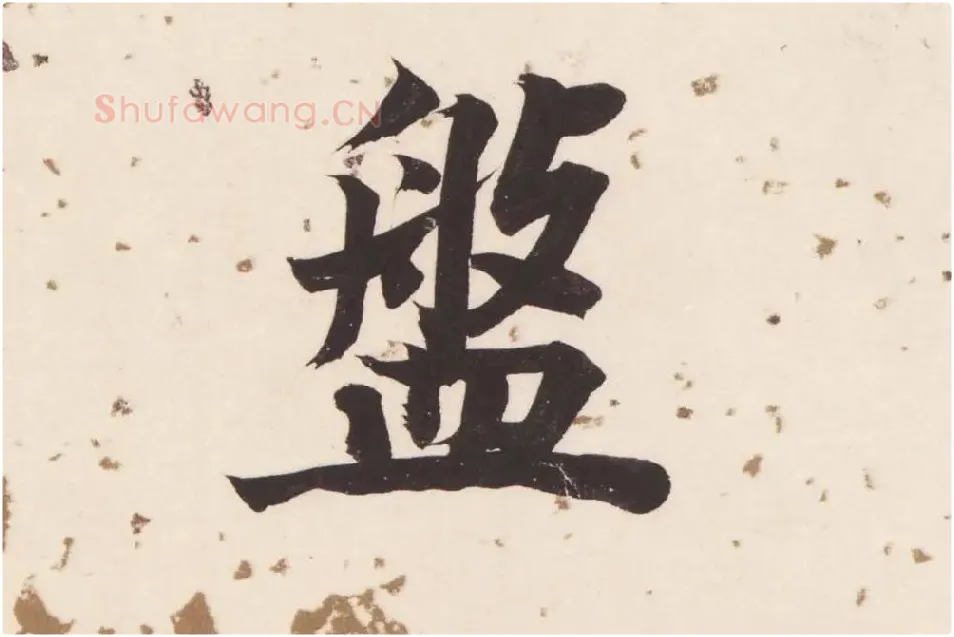 Shufawang.CN
盤